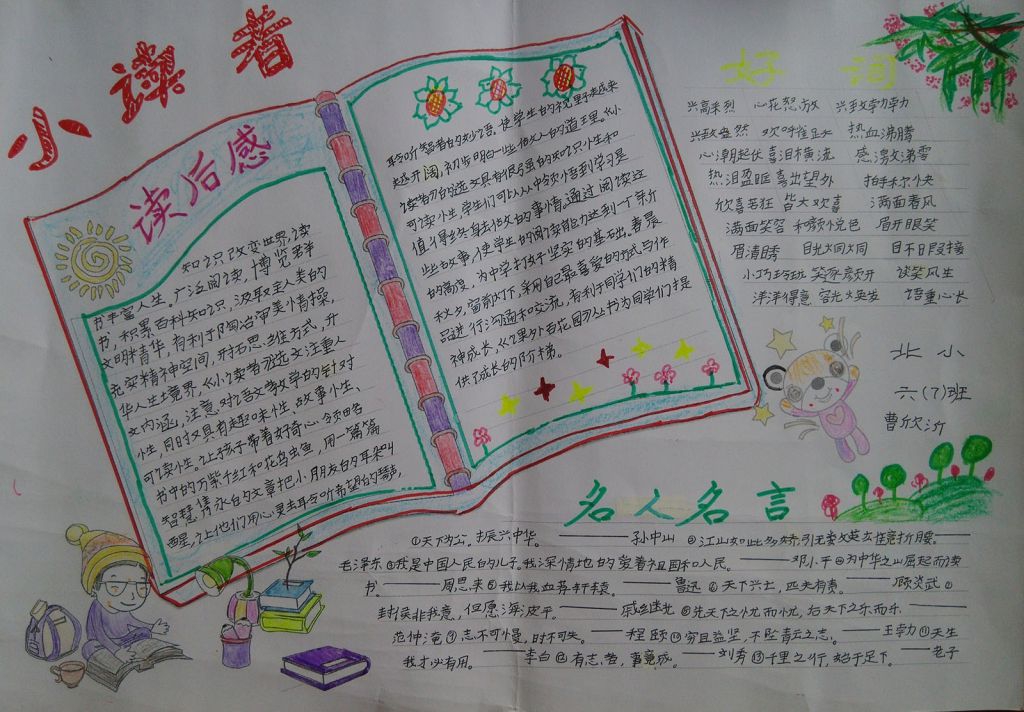 小读者
读后感
知识改变世界,读
书丰富人生。广泛阅读,博览群
书,积累百科知识,汲取走人类的
文明精华,有利于陶冶审美情操,
充实精神空间,开拓思维方式,升
华人生境界。《小读者》选文注重人
文内涵,注意对语文教学的针对
性,同时又具有趣味性、故事性、
可读性。让孩子带着好奇心领略
书中的万紫千红和花鸟虫鱼,用一篇篇
智慧隽永的文章把小朋友的耳朵叫
醒,让他们用心灵去聆听希望的琴声,
聆听智者的妙语。使学生的视野越来
越开阔,初步明白一些做人的道理。《小
读者》的选文具有很强的知识性和
可读性,学生们可以从中领悟到学习是
值得终身去做的事情。通过阅读这
些故事,使学生的阅读能力达到一个新
的高度,为中学打好坚实的基础。春晨
秋夕,窗前灯下,采用自己最喜爱的形式与作
品进行沟通和交流,有利于同学们的精
神成长,《课外百花园》丛书为同学们提
供了成长的阶梯。
好词
兴高采烈 心花怒放 兴致勃勃
兴致盎然 欢呼雀跃 热血沸腾
心潮起伏 喜泪横流 感激涕零
热泪盈眶 喜出望外 拍手称快
欣喜若狂 皆大欢喜 满面春风
满面笑容 和颜悦色 眉开眼笑
眉清目秀 目光炯炯 目不暇接
小巧玲珑 笑逐颜开 谈笑风生
洋洋得意 容光焕发 语重心长
北小
六(7)班
曹欣沂
名人名言
①天下为公。振兴中华。——孙中山 ②江山如此多娇,引无数英雄竞折腰。——
毛泽东 ③我是中国人民的儿子。我深情地的爱着祖国和人民。——邓小平 ④为中华之崛起而读
书。——周恩来 ⑤我以我血荐轩辕。——鲁迅 ⑥天下兴亡,匹夫有责。——顾炎武 ⑦
封侯非我意,但愿海波平。——戚继光 ⑧先天下之忧而忧,后天下之乐而乐。——
范仲淹 ⑨志不可慢,时不可失。——程颐 ⑩穷且益坚,不坠青云之志。——王勃 ⑪天生
我才必有用。——李白 ⑫有志者,事竟成。——刘秀 ⑬千里之行,始于足下。——老子